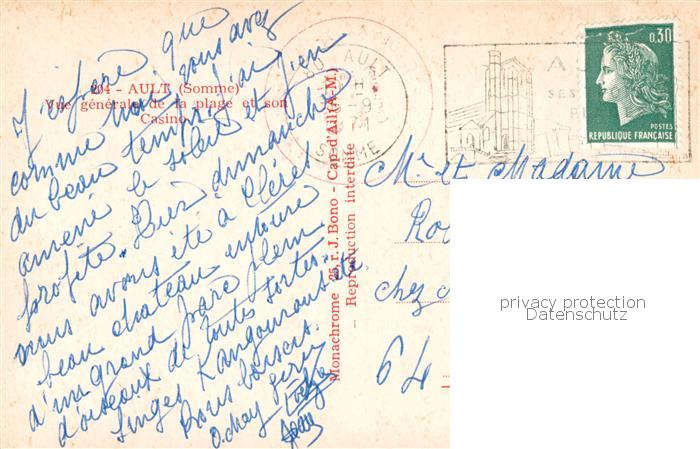 J'espère que
comme nous vous avez
du beau temps. J'ai
amené le soleil et j'en
profite. Hier dimanche
nous avons été à Clères
beau chateau entouré
d'un grand parc plein
d'oiseaux de toutes sortes.
singes Kangourous etc
Bons baisers.
204 - AULT (Somme)
Vue générale de la plage et son
Casino
Monochrome 25, r. J. Bono - Cap-d'Ail (A.-M.)
Reproduction interdite
80 AULT
SOMME
A
SES
0,30
POSTES
REPUBLIQUE FRANÇAISE
Mr et Madame
chez
64
privacy protection
Datenschutz